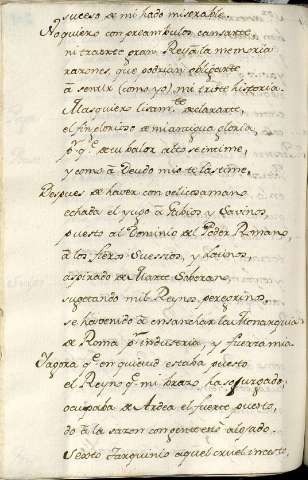 suceso de mi hado miserable.
No quiero con preambulos cansarte
ni traerte gran Rey a la memoria
razones, que podrian obligarte
a sentir (como yo) mi triste historia.
Mas quiero lisamte declararte,
el fin glorioso de mi antigua gloria,
pr qe de tu balor alto se intime,
y como a Deudo mio te lastime,
Despues de haver con velicosa mano
echado el yugo a Fabios, y Savinos
puesto al Dominio de el Poder Romano,
a los fieros Suessios, y Latinos
aspirado de Marte Soberano,
sugetando mil Reynos peregrinos,
se ha tenido a ensanchar la Monarquia
de Roma pr industria, y fuerza mia.
Y agora qe con quietud estaba puesto
el Reyno qe mi brazo ha sojuzgado,
ocupaba de Ardea el fuerte puesto,
do a la sazon con gente este alojado.
Sexto Tarquinio aquel cruel incesto,